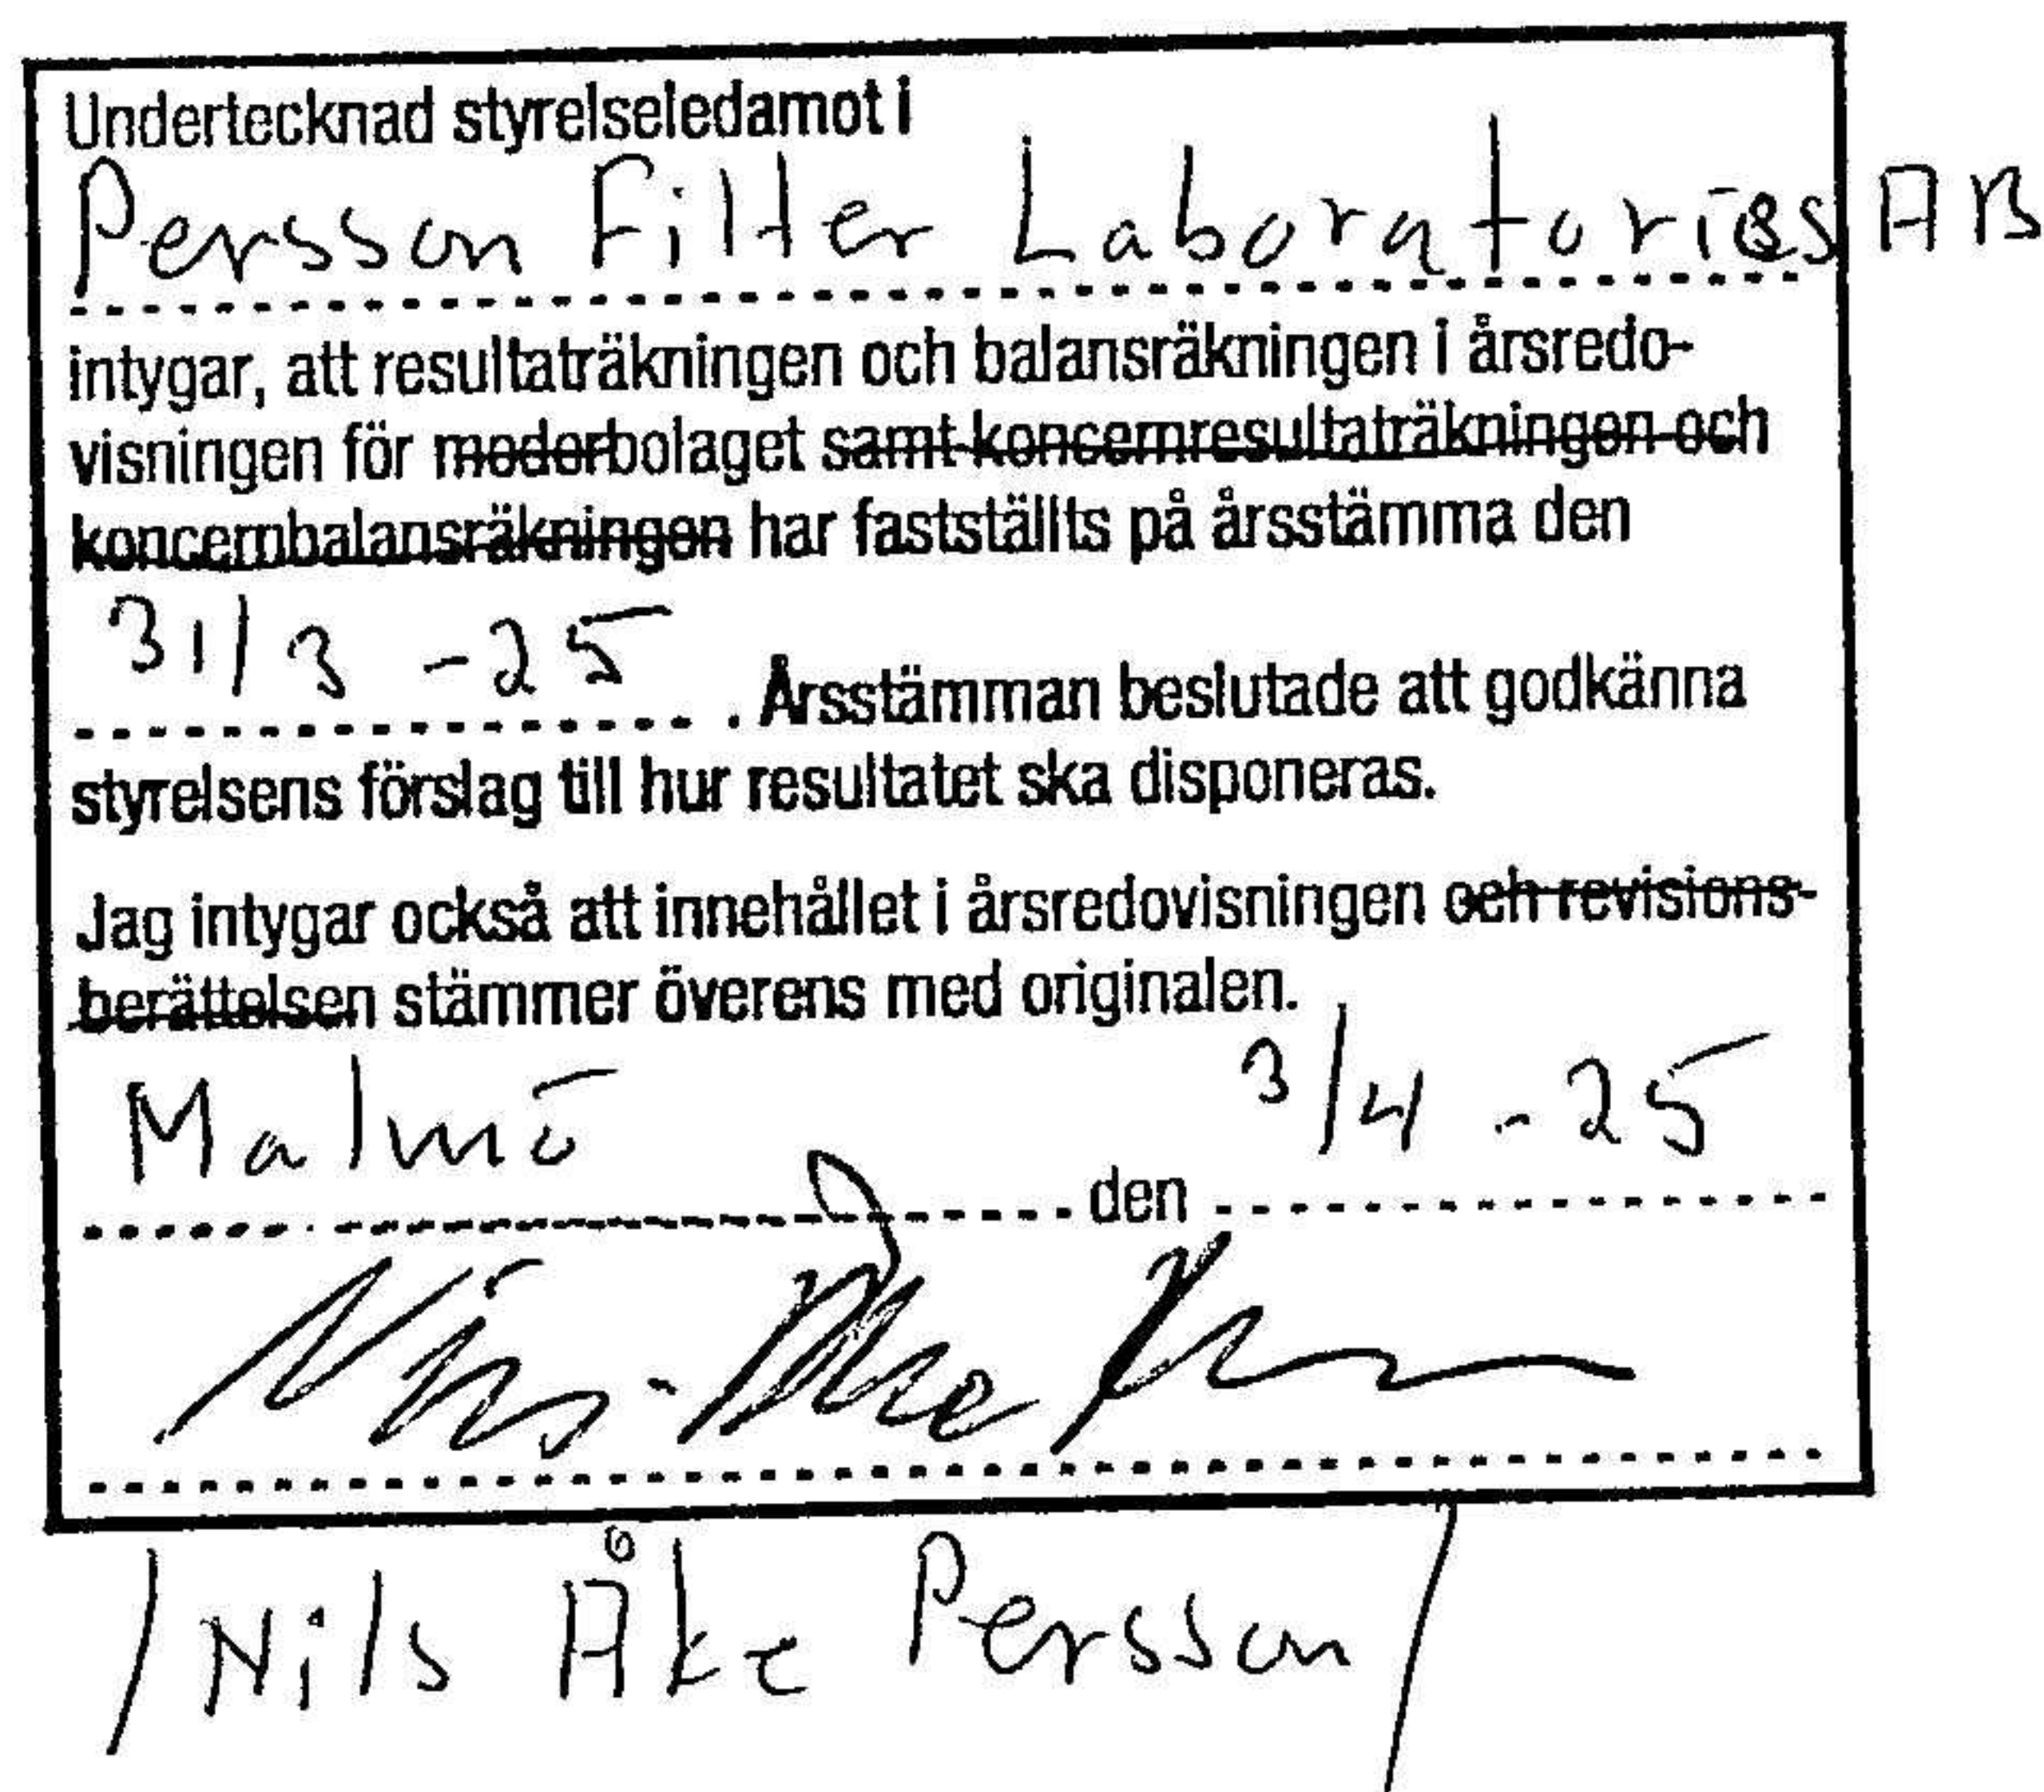 Undertecknad styrelseledamot i
Persson Filter Laboratories AB
intygar, att resultaträkningen och balansräkningen i årsredo-
visningen för moderbolaget samt koncernresultaträkningen och
koncernbalansräkningen har fastställts på årsstämma den
31/3 -25 . Årsstämman beslutade att godkänna
styrelsens förslag till hur resultatet ska disponeras.
Jag intygar också att innehållet i årsredovisningen och revisions-
berättelsen stämmer överens med originalen.
Malmö den 3/4 -25
Nils-Åke Persson
/Nils Åke Persson/